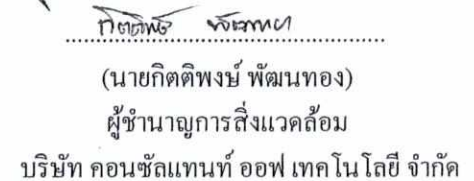 (นายกิตติพงษ์ พัฒนทอง)
ผู้ชำนาญการสิ่งแวดล้อม
บริษัท คอนซัลแทนท์ ออฟ เทคโนโลยี จำกัด